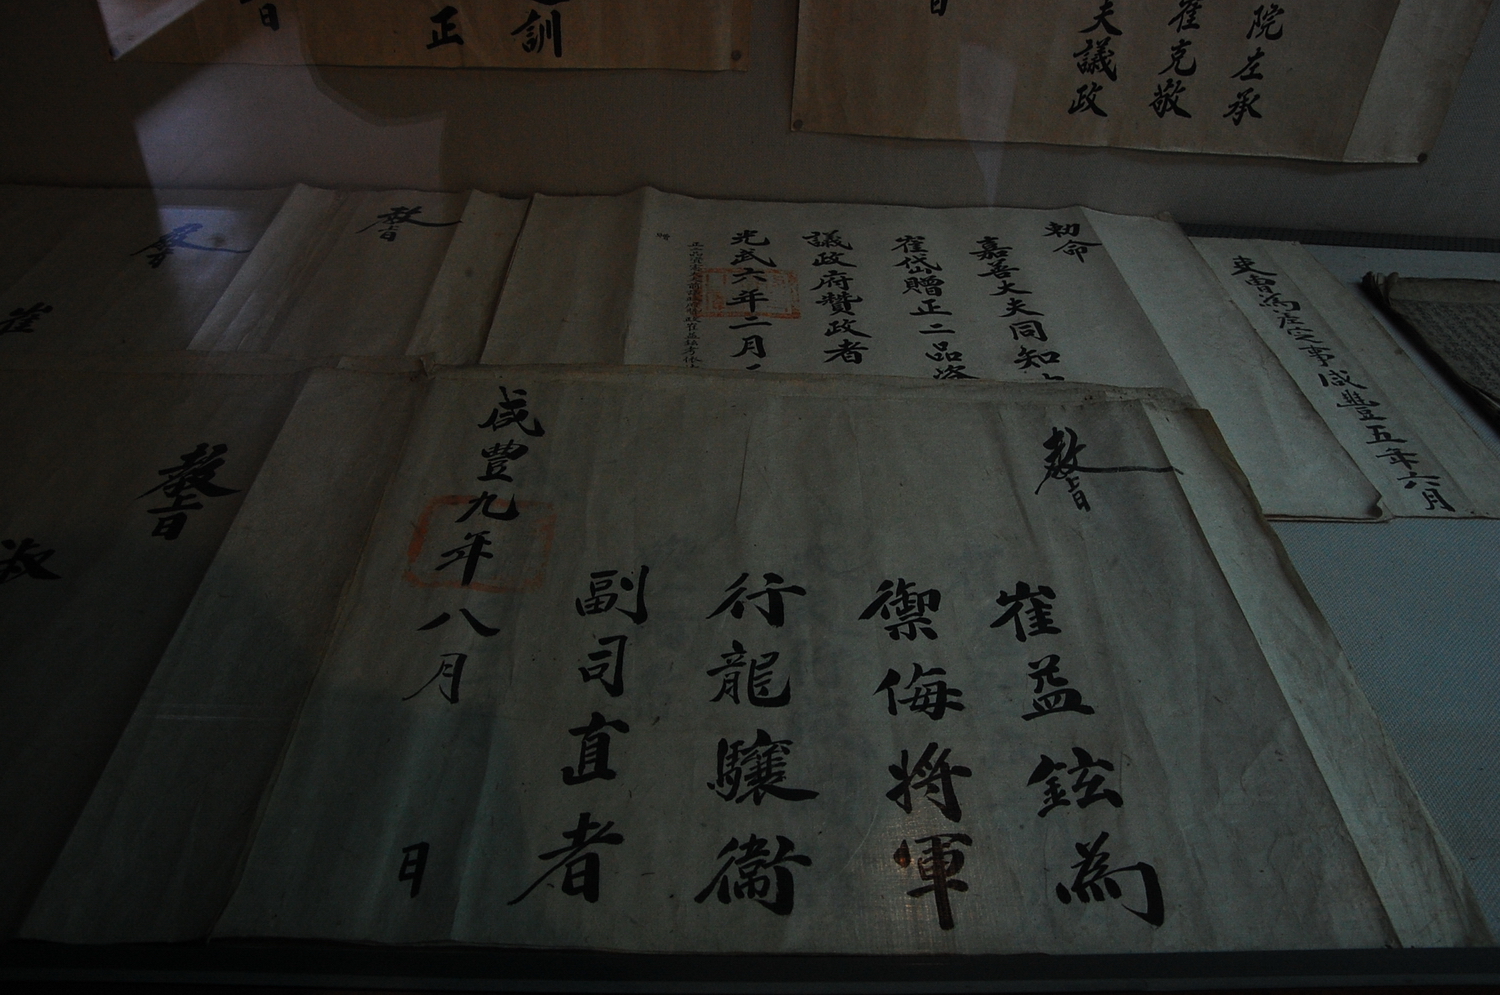 院左承
崔克敬
夫議政
日
訓
正
旨
吏曹為差定事咸豐五年六月
勅命
嘉善大夫同知
崔岱贈正二品資
議政府贊政者
光武六年二月
教旨
教旨
崔益鉉為
禦侮將軍
行龍驤衛
副司直者
咸豐九年八月 日
教旨
崔